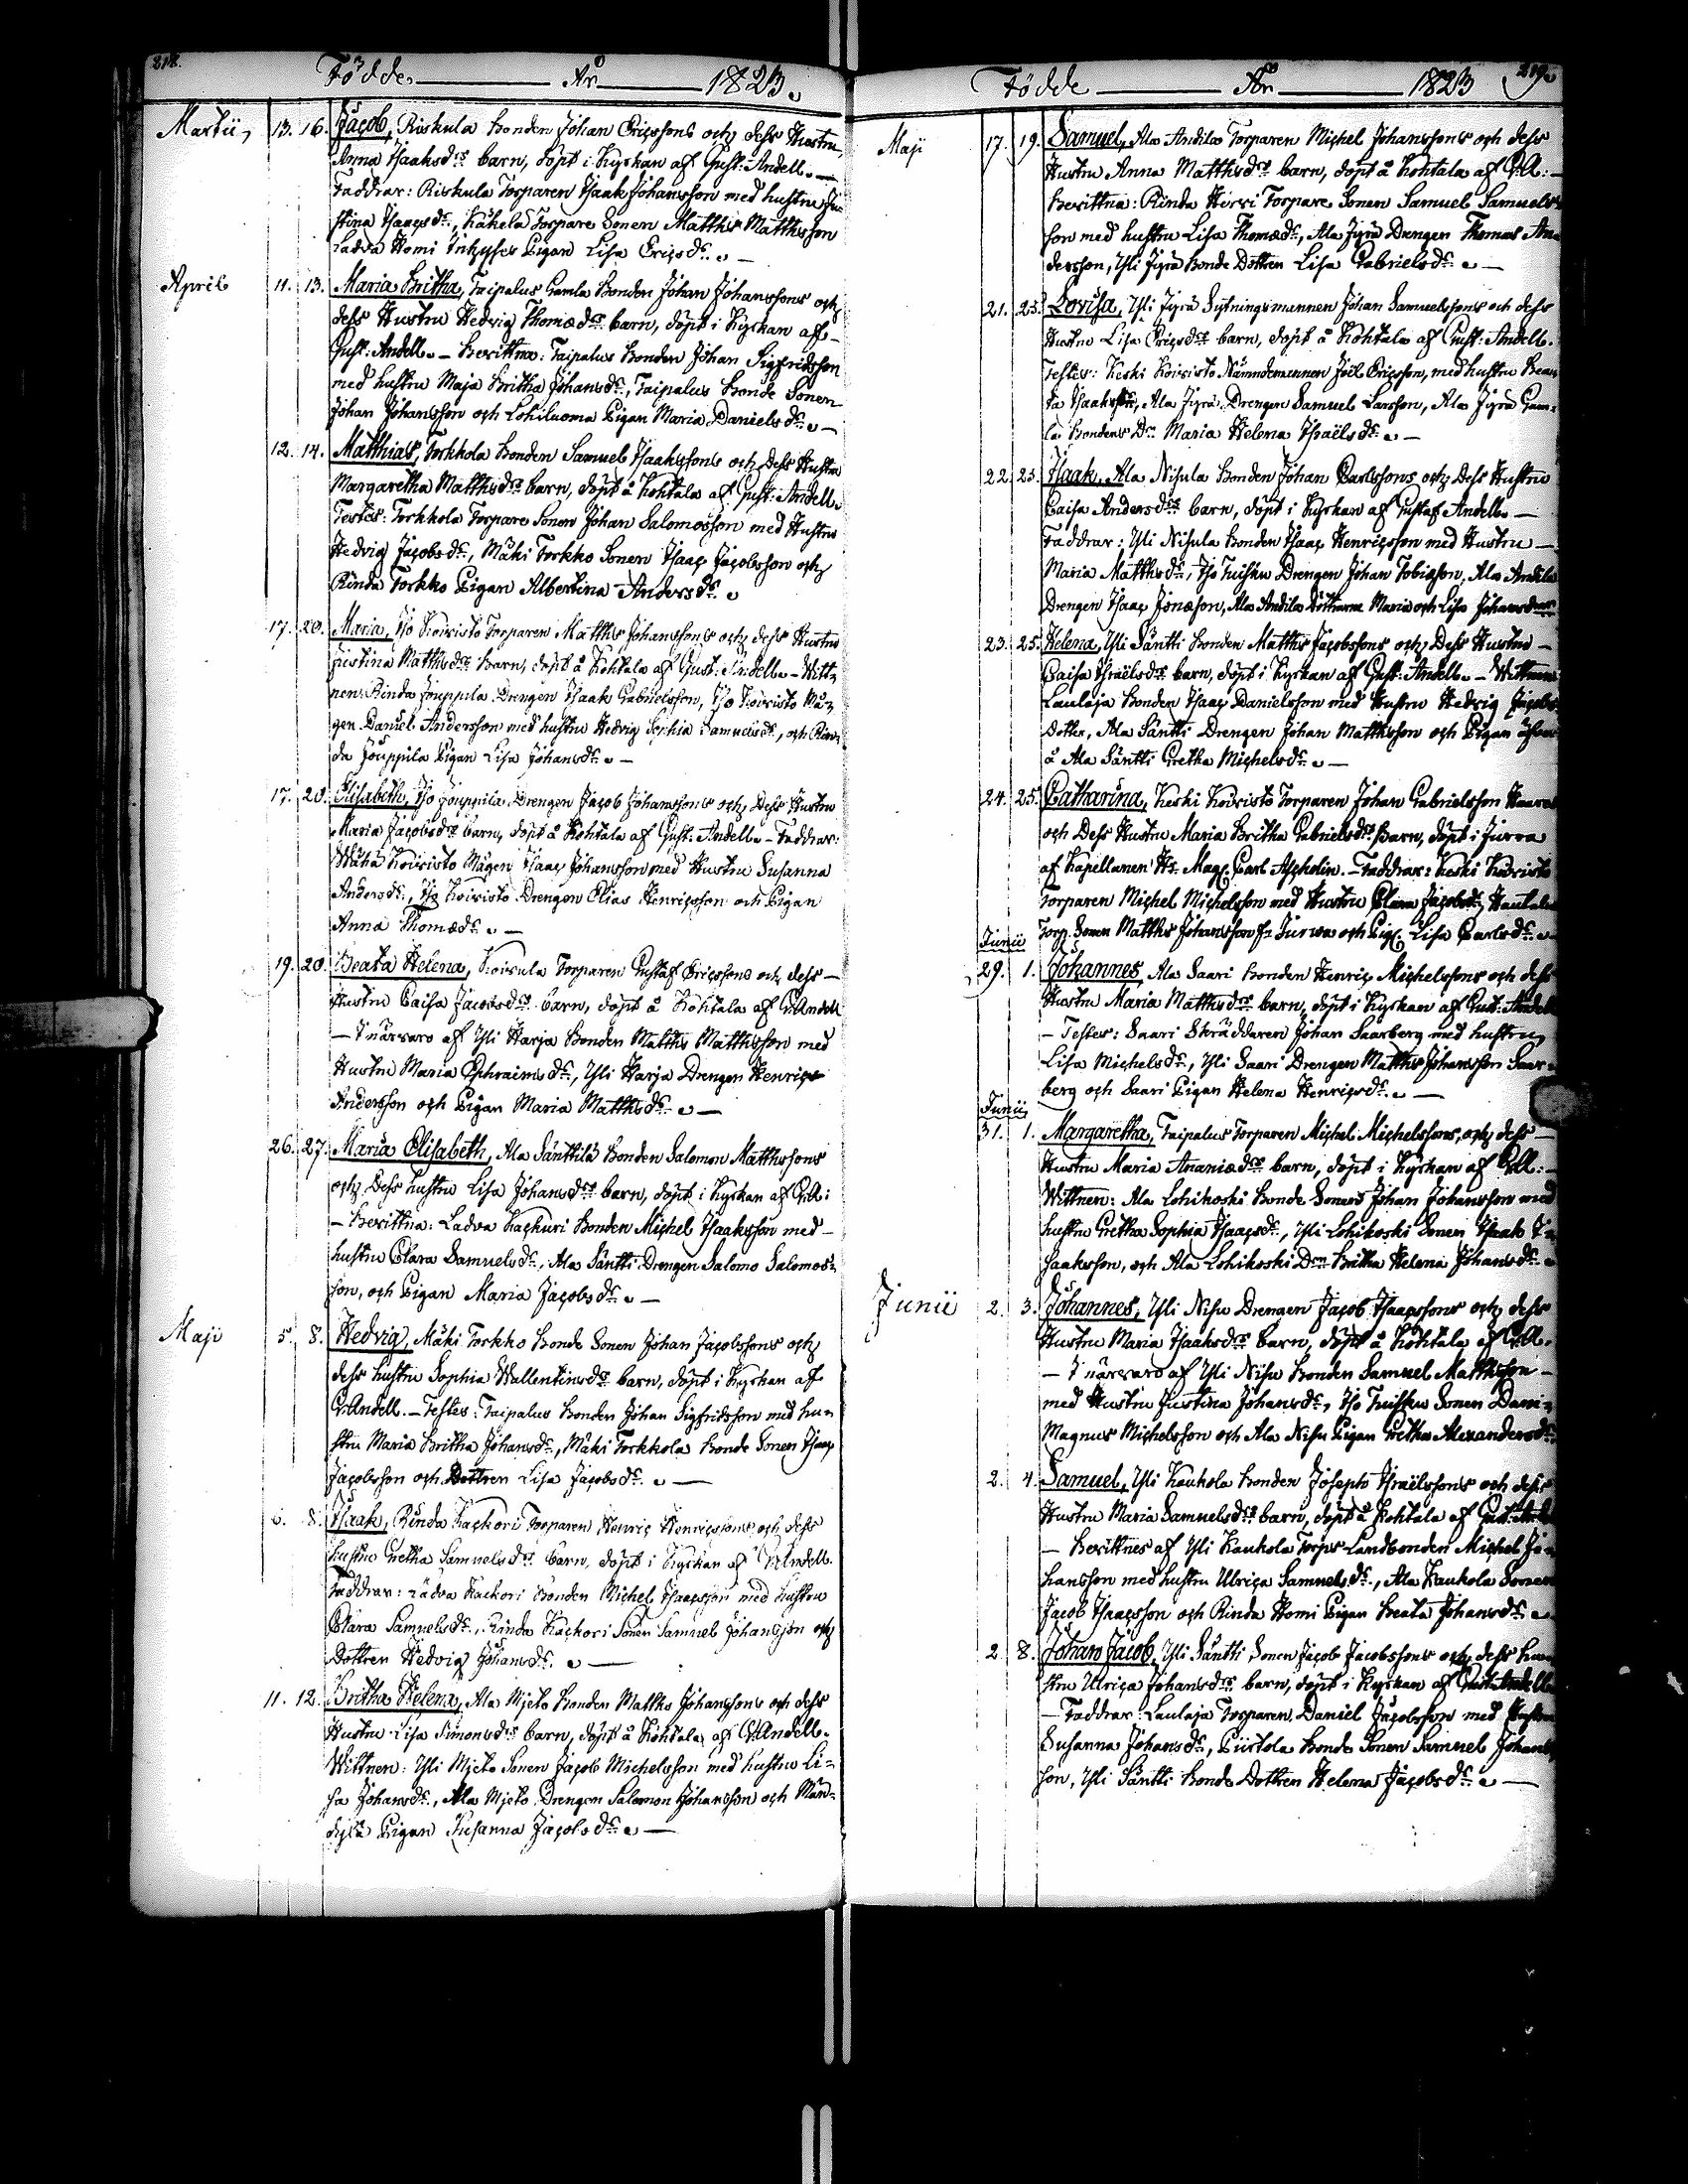 218.
Födde År 1823.
Martii, 13. 16. Jacob, Riskula bonden Johan Ericssons och dess Hustru
Anna Isaaksdrs barn, döpt i Kyrkan af Gust: Andell. —
Faddrar: Riskula Torparen Isaak Johansson med hustru Ju
stina Isaacsdr, Käkelä Torpare Sonen Matths Mattsson
Ladva Homi Inhyses Pigan Lisa Ericsdr. —
Aprill 11. 13. Maria Britha, Taipalus Gamla Bonden Johan Johanssons och
dess Hustru Hedvig Thomædrs barn, döpt i Kyrkan af
Gust: Andell. — Bevittna: Taipalus Bonden Johan Sigfridsson
med hustru Maja Britha Johansdr, Taipalus Bonde Sonen
Johan Johansson och Lohiluoma Pigan Maria Danielsdr. —
12. 14. Matthias, Torkkola Bonden Samuel Isaakssons och dess Hustru
Margaretha Matthsdrs barn, döpt å Kohtala af Gust: Andell.
Testes: Torkkola Torpare Sonen Johan Salomosson med Hustru
Hedvig Jacobsdr, Mäki Torkko Sonen Isaac Jacobsson och
Rinda Torkko Pigan Albertina Andersdr.
17. 20. Maria, Iso Koivisto Torparen Matths Johanssons och dess Hustru
Justina Matthsdrs Barn, döpt å Kohtala af Gust: Andell. — Witt
nen: Rinda Jouppila Drengen Isaak Gabrielsson, Iso Koivisto Må
gen Daniel Andersson med hustru Hedvig Sophia Samuelsdr, och Rin
da Jouppila Pigan Lisa Johansdr. —
17. 20. Elisabeth, Iso Jouppila Drengen Jacob Johanssons och Dess Hustru
Maria Jacobsdrs barn, döpt å Kohtala af Gust: Andell. — Faddrar:
Wähä Koivisto Mågen Isaac Johansson med Hustru Susanna
Andersdr, Iso Koivisto Drengen Elias Henricsson och Pigan
Anna Thomædr. —
19. 20. Beata Helena, Koiskula Torparen Gustaf Ericssons och dess —
Hustru Caisa Jacobsdrs barn, döpt å Kohtala af G: Andell
— I närvaro af Yli Harja Bonden Matths Matthsson med
Hustru Maria Ephraimsdr, Yli Harja Drengen Henric
Andersson och Pigan Maria Matthsdr. —
26. 27. Maria Elisabeth, Ala Sänttilä Bonden Salomon Matthssons
och Dess hustru Lisa Johansdrs barn, döpt i Kyrkan af G:A:
— Bevittna: Ladva Kackuri Bonden Michel Isaaksson med —
hustru Clara Samuelsdr, Ala Säntti Drengen Salomo Salomos
son, och Pigan Maria Jacobsdr. —
Maji 5. 8. Hedvig, Mäki Torkko Bonde Sonen Johan Jacobssons och
dess hustru Sophia Wallentinsdrs barn, döpt i Kyrkan af
G: Andell. — Testes: Taipalus Bonden Johan Sigfridsson med hu
stru Maria Britha Johansdr, Mäki Torkkola Bonde Sonen Isaac
Jacobsson och Dottren Lisa Jacobsdr. —
6. 8. Isaak, Rinda Kackori Torparen Henric Henricssons och dess
hustru Gretha Samuelsdrs barn, döpt i Kyrkan af G: Andell.
Faddrar: Ladva Kackori Bonden Michel Isaacsson med hustru
Clara Samuelsdr, Rinda Kackori Sonen Samuel Johansson och
Dottren Hedvig Johansdr. —
11. 12. Britha Helena, Ala Mjeto Bonden Matths Johanssons och dess
Hustru Lisa Simonsdrs barn, döpt å Kohtala af G: Andell.
Wittnen: Yli Mjeto Sonen Jacob Michelsson med hustru Li=
sa Johansdr, Ala Mjeto Drengen Salomon Johansson och Män=
dylä Pigan Susanna Jacobsdr. —
219.
Födde År 1823
Maji 17. 19. Samuel, Ala Andila Torparen Michel Johanssons och dess
Hustru Anna Matthsdrs barn, döpt å Kohtala af G:A: —
Bevittna: Rinda Hirvi Torpare Sonen Samuel Samuels
son med hustru Lisa Thomædr, Ala Jyrä Drengen Thomas An
dersson, Yli Jyrä Bonde Dottren Lisa Gabrielsdr. —
21. 25. Lovisa, Yli Jyrä Sytningsmannen Johan Samuelssons och dess
Hustru Lisa Ericsdrs barn, döpt å Kohtala af Gust: Andell.
Testes: Keski Koivisto Nämndemannen Joël Ericsson, med hustru Bea
ta Isaaksdr, Ala Jyrä Drengen Samuel Larsson, Ala Jyrä Gam=
la Bondens Dr Maria Helena Israëlsdr. —
22. 25. Isaak, Ala Nisula Bonden Johan Carlssons och Dess Hustru
Caisa Andersdrs barn, döpt i Kyrkan af Gustaf Andell. —
Faddrar: Yli Nisula Bonden Isaac Henricsson med Hustru —
Maria Matthsdr, Iso Tuisku Drengen Johan Tobiasson, Ala Andila
Drengen Isaac Jonæson, Ala Andila Döttrarne Maria och Lisa Johansdrar
23. 25. Helena, Yli Säntti Bonden Matths Jacobssons och Dess Hustru —
Caisa Israëlsdrs barn, döpt i Kyrkan af Gust: Andell. — Wittnen
Laulaja Bonden Isaac Danielsson med Hustru Hedvig Jacobs
Dotter, Ala Säntti Drengen Johan Matthsson och Pigan
å Ala Säntti Gretha Michelsdr. —
24. 25. Catharina, Keski Koivisto Torparen Johan Gabrielsson
och Dess Hustru Maria Britha Gabrielsdrs Barn, döpt i Jurva
af Kapellanen Hr Mag. Carl Ascholin. — Faddrar: Keski Koivisto
Torparen Michel Michelsson med Hustru Clara Jacobsdr, Hautala
Torp. Sonen Matths Johansson fr Jurva och Pig. Lisa Carlsdr. —
Junii
29. 1. Johannes, Ala Saari Bonden Henric Michelssons och dess
Hustru Maria Matthsdrs barn, döpt i Kyrkan af Gust: Andell
— Testes: Saari Skräddaren Johan Saarberg med hustru
Lisa Michelsdr, Yli Saari Drengen Matths Johansson Saar=
berg och Saari Pigan Helena Henricsdr. —
Junii
31. 1. Margaretha, Taipalus Torparen Michel Michelssons, och dess —
Hustru Maria Ananiædrs barn, döpt i Kyrkan af G:A: —
Wittnen: Ala Lohikoski Bonde Sonen Johan Johansson med
hustru Gretha Sophia Isaacsdr, Yli Lohikoski Sonen Isaak I=
saaksson, och Ala Lohikoski Drn Britha Helena Johansdr.
Junii 2. 3. Johannes, Yli Nisu Drengen Jacob Isaacssons och dess
Hustru Maria Isaaksdrs barn, döpt å Kohtala af G:A.
— I närvaro af Yli Nisu Bonden Samuel Matthsson —
med Hustru Justina Johansdr, Iso Tuisku Sonen Dani=
Magnus Michelsson och Ala Nisu Pigan Gretha Alexandersdr.
2. 4. Samuel, Yli Kaukola Bonden Joseph Israëlssons och dess
Hustru Maria Samuelsdrs barn, döpt å Kohtala af Gust: Andell
— Bevittnes af Yli Kaukola Torps Landbonden Michel Jo=
hansson med hustru Ulrica Samuelsdr, Ala Kaukola Sonen
Jacob Isaacsson och Rinda Homi Pigan Beata Johansdr.
2 8. Johan Jacob, Yli Säntti Sonen Jacob Jacobssons och dess hu
stru Ulrica Johansdrs barn, döpt i Kyrkan af Gust: Andell
— Faddrar: Laulaja Torparen Daniel Jacobsson med Hustru
Susanna Johansdr, Piirtola Bonde Sonen Samuel Johans
son, Yli Säntti Bonde Dottren Helena Jacobsdr. —